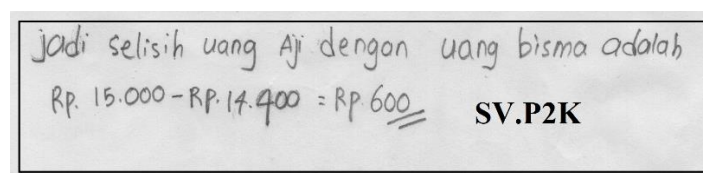 jadi selisih uang Aji dengan uang bisma adalah
Rp. 15.000 - Rp. 14.400 = Rp. 600
SV.P2K